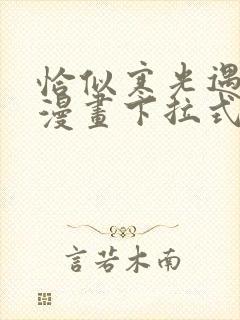 恰似寒光遇
漫畫下拉式
言若木南